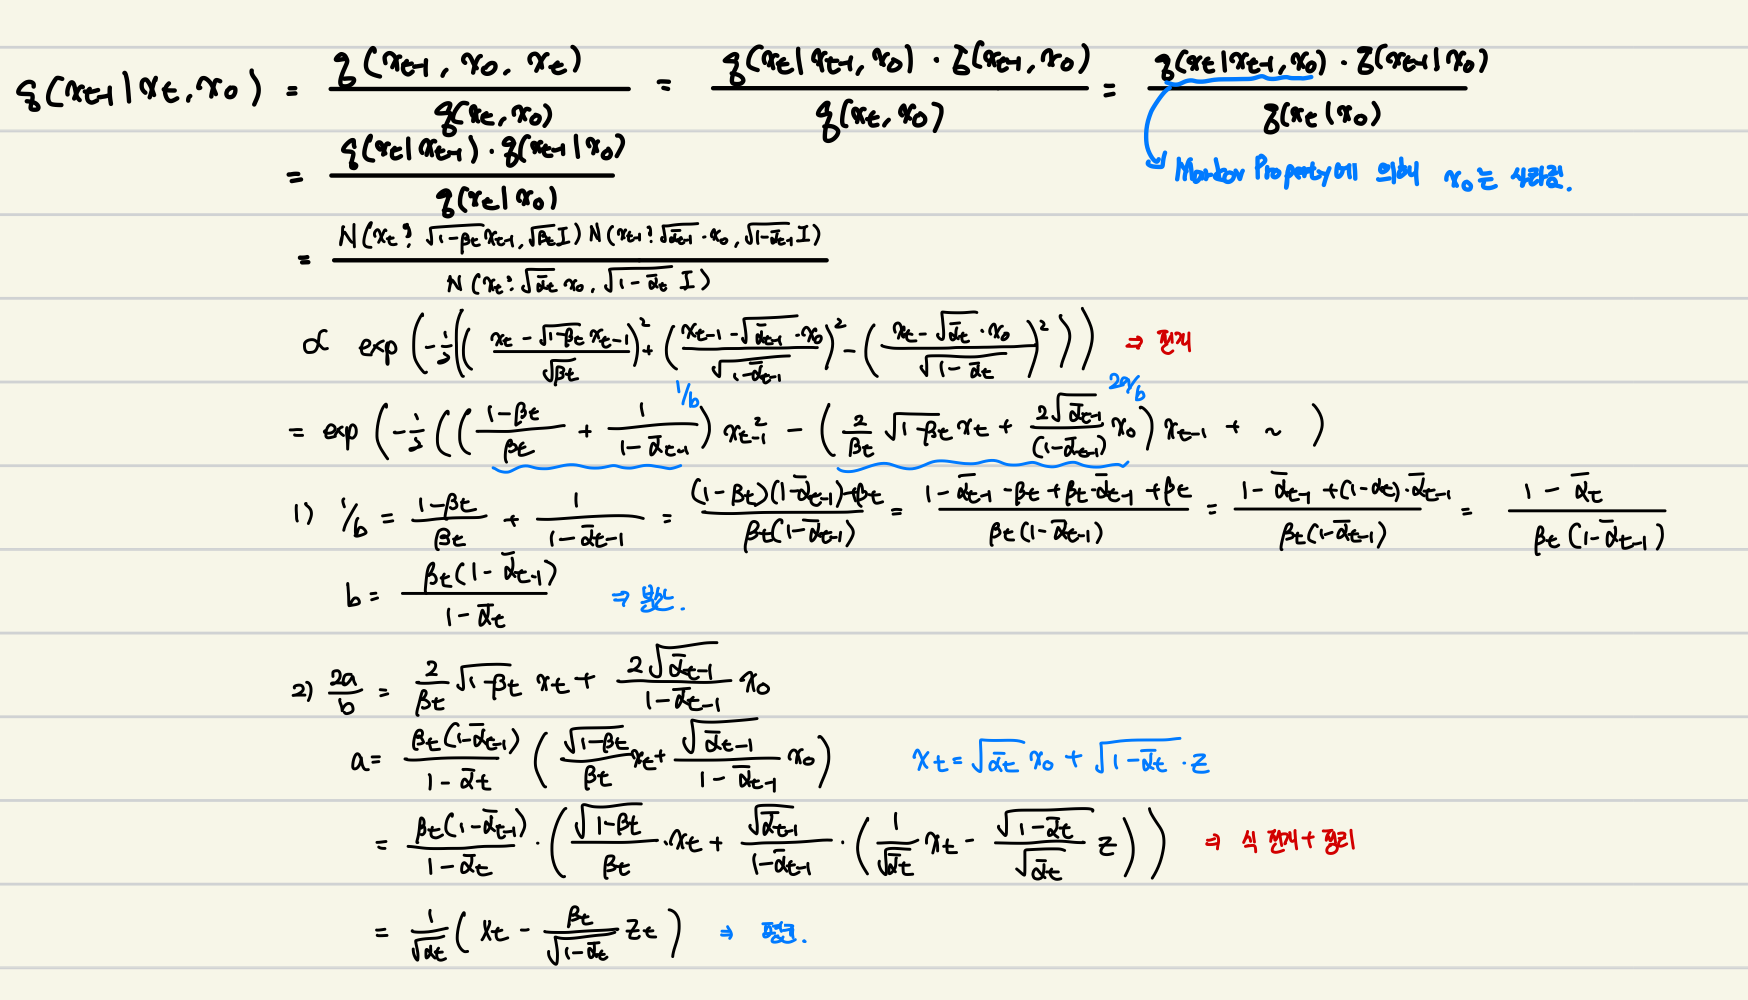 q(x_{t-1}|x_t, x_0) = \frac{q(x_{t-1}, x_0, x_t)}{q(x_t, x_0)} = \frac{q(x_t|x_{t-1}, x_0) · q(x_{t-1}, x_0)}{q(x_t, x_0)} = \frac{q(x_t|x_{t-1}, x_0) · q(x_{t-1}|x_0)}{q(x_t|x_0)}
Markov Property에 의해 x_0는 사라짐.
= \frac{q(x_t|x_{t-1}) · q(x_{t-1}|x_0)}{q(x_t|x_0)}
= \frac{N(x_t; \sqrt{1-β_t} x_{t-1}, \sqrt{β_t} I) N(x_{t-1}; \sqrt{\bar{α}_{t-1}} · x_0, \sqrt{1-\bar{α}_{t-1}} I)}{N(x_t; \sqrt{\bar{α}_t} x_0, \sqrt{1-\bar{α}_t} I)}
∝ exp(-\frac{1}{2}((\frac{x_t - \sqrt{1-β_t} x_{t-1}}{\sqrt{β_t}})^2 + (\frac{x_{t-1} - \sqrt{\bar{α}_{t-1}} · x_0}{\sqrt{1-\bar{α}_{t-1}}})^2 - (\frac{x_t - \sqrt{\bar{α}_t} · x_0}{\sqrt{1-\bar{α}_t}})^2)) ⇒ 전개
1/b 2a/b
= exp(-\frac{1}{2}((\frac{1-β_t}{β_t} + \frac{1}{1-\bar{α}_{t-1}}) x_{t-1}^2 - (\frac{2}{β_t} \sqrt{1-β_t} x_t + \frac{2\sqrt{\bar{α}_{t-1}}}{(1-\bar{α}_{t-1})} x_0) x_{t-1} + ~ )
1) 1/b = \frac{1-β_t}{β_t} + \frac{1}{1-\bar{α}_{t-1}} = \frac{(1-β_t)(1-\bar{α}_{t-1})+β_t}{β_t(1-\bar{α}_{t-1})} = \frac{1-\bar{α}_{t-1}-β_t+β_t·\bar{α}_{t-1}+β_t}{β_t(1-\bar{α}_{t-1})} = \frac{1-\bar{α}_{t-1}+(1-α_t)·\bar{α}_{t-1}}{β_t(1-\bar{α}_{t-1})} = \frac{1-\bar{α}_t}{β_t(1-\bar{α}_{t-1})}
b = \frac{β_t(1-\bar{α}_{t-1})}{1-\bar{α}_t} ⇒ 분산.
2) \frac{2a}{b} = \frac{2}{β_t} \sqrt{1-β_t} x_t + \frac{2\sqrt{\bar{α}_{t-1}}}{1-\bar{α}_{t-1}} x_0
a = \frac{β_t(1-\bar{α}_{t-1})}{1-\bar{α}_t} (\frac{\sqrt{1-β_t}}{β_t} x_t + \frac{\sqrt{\bar{α}_{t-1}}}{1-\bar{α}_{t-1}} x_0) x_t = \sqrt{\bar{α}_t} x_0 + \sqrt{1-\bar{α}_t} · z
= \frac{β_t(1-\bar{α}_{t-1})}{1-\bar{α}_t} · (\frac{\sqrt{1-β_t}}{β_t} · x_t + \frac{\sqrt{\bar{α}_{t-1}}}{1-\bar{α}_{t-1}} · (\frac{1}{\sqrt{\bar{α}_t}} x_t - \frac{\sqrt{1-\bar{α}_t}}{\sqrt{\bar{α}_t}} z)) ⇒ 식 전개 + 정리
= \frac{1}{\sqrt{α_t}} (x_t - \frac{β_t}{\sqrt{1-\bar{α}_t}} z_t) ⇒ 평균.